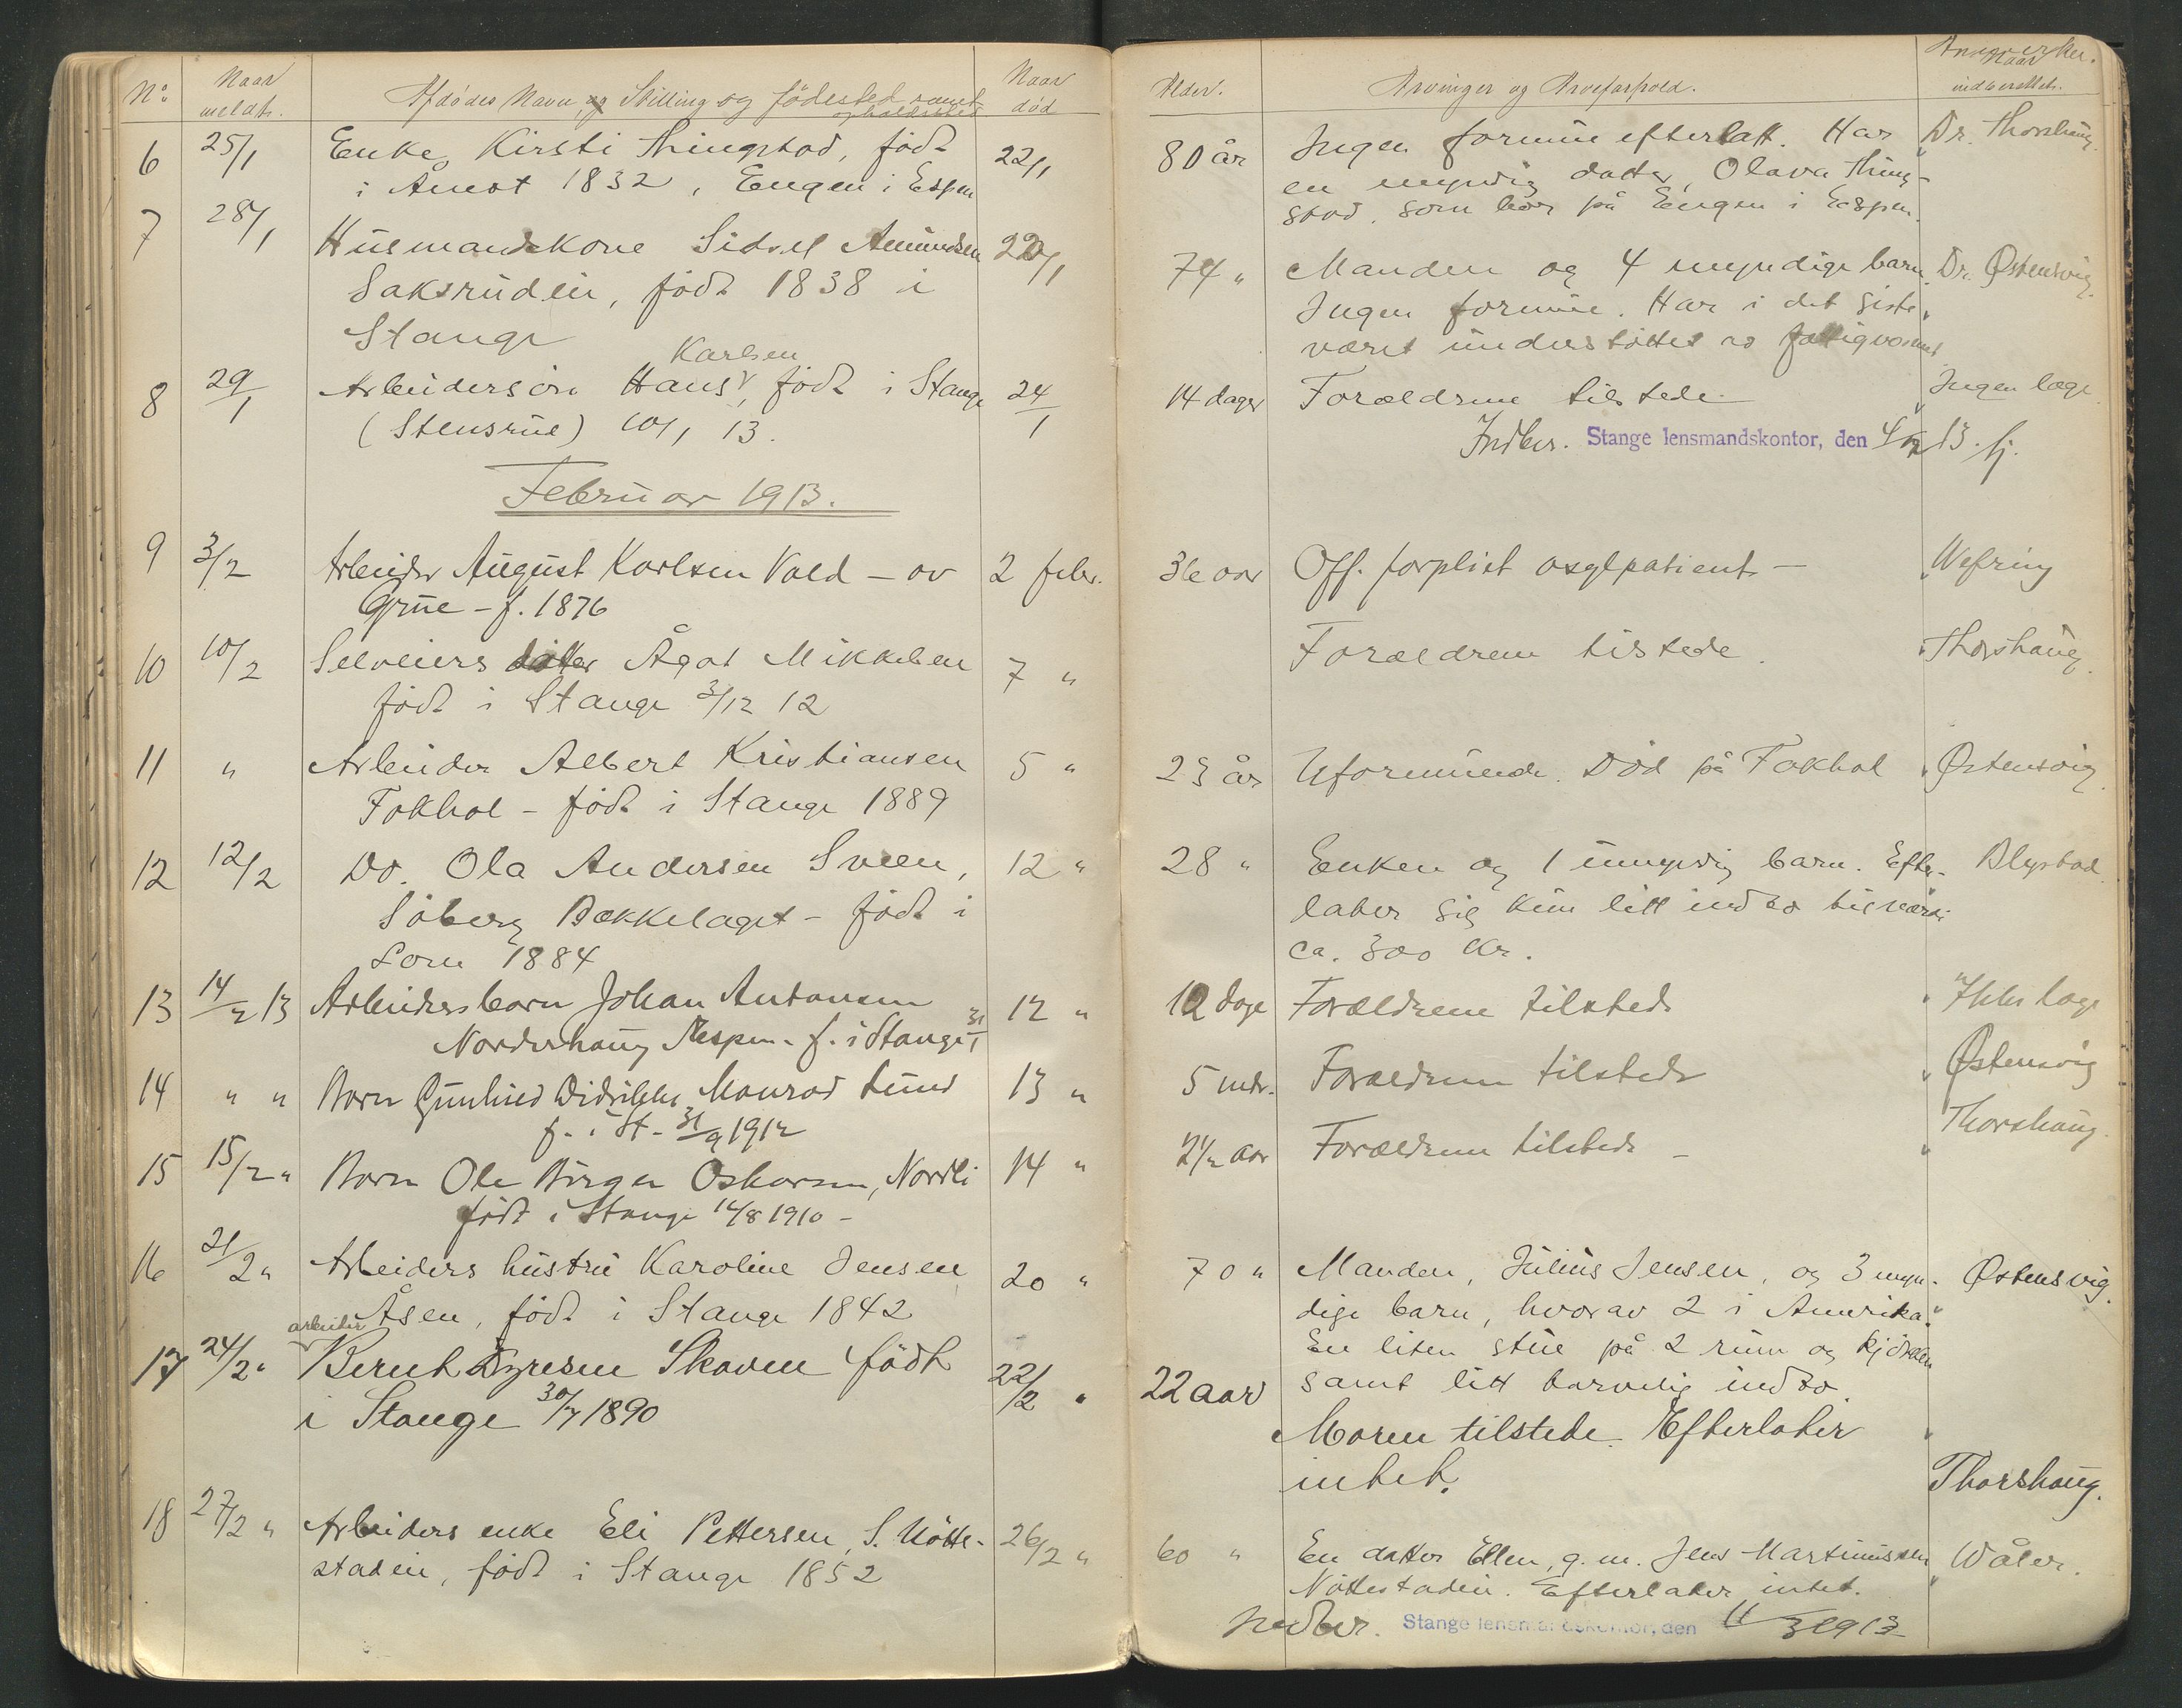 No. Naar meldt. Afdødes Navn, og Stilling og födested samt opholdssted Naar död
6 25/1 Enke Kirsti Thingstad, födt 22/1
i Åmot 1832, Engen i Espen
7 28/1 Husmandskone Sidsel Amundsen 22/1
Saksrudeie, födt 1838 i
Stange
Karlsen
8 29/1 Arbeidersön Hans, födt i Stange 24/1
(Stensrud) 10/1 13.
Februar 1913.
9 3/2 Arbeider August Karlsen Vold - av 2 febr.
Grue - f. 1876
10 10/2 Selveiers datter Ågot Mikkelsen 7 "
födt i Stange 3/12 12
11 " Arbeider Albert Kristiansen 5 "
Fokhol - födt i Stange 1889
12 12/2 Do. Ola Andersen Sveen, 12 "
Söberg Bækkelaget - födt i
Lom 1884
13 14/2 13 Arbeidersbarn Johan Antonsen 12 "
Norderhaug Æspen - f. i Stange 31/1
14 " " Barn Gunhild Didrikke Monrad Lund 13 "
f. i St. 31/9 1912
15 15/2 " Barn Ole Birger Oskarsen, Nordli 14 "
födt i Stange 14/8 1910 -
16 21/2 " Arbeiders hustru Karoline Jensen 20 "
Åsen, födt i Stange 1842
arbeider
17 24/2 " Bernt Syresen Skaven födt 22/2 "
i Stange 30/7 1890
18 27/2 " Arbeiders enke Eli Pettersen, S. Nötte- 26/2 "
stadeie, födt i Stange 1852
Alder. Arvinger og Arveforhold. Anmerker. Naar indberettet.
80 år Ingen formue efterlatt. Har " Dr. Thorshaug.
en myndig datter, Olava Thing-
stad, som bor på Engen i Espen.
74 " Manden og 4 myndige barn. Dr. Østensvig.
Ingen formue. Har i det siste "
været understöttet av fattigvæsenet
14 dager Forældrene tilstede " Ingen læge.
Indber. Stange lensmandskontor, den 4/2 13.
36 aar Off. forpleiet asylpatient - " Wefring
Forældrene tilstede. " Thorshaug.
23 år Uformuende. Död på Fokhol " Østensvig.
28 " Enken og 1 umyndig barn. Efter- Blystad.
later sig kun litt indbo til værdi "
ca. 300 kr.
12 dage Forældrene tilstede " Ikke læge
5 mdr. Forældrene tilstede " Østensvig
2 1/2 aar Forældrene tilstede - " Thorshaug.
70 " Manden, Julius Jensen, og 3 myn- Østensvig.
dige barn, hvorav 2 i Amerika. "
En liten stue på 2 rum og kjökken
samt litt tarvelig indbo.
22 aar Moren tilstede. Efterlater "
intet. Thorshaug.
60 " En datter Ellen, g. m. Jens Martinussen Wåler.
Nöttestadeie. Efterlater intet. "
Indber. Stange lensmandskontor, den 11/3 1913